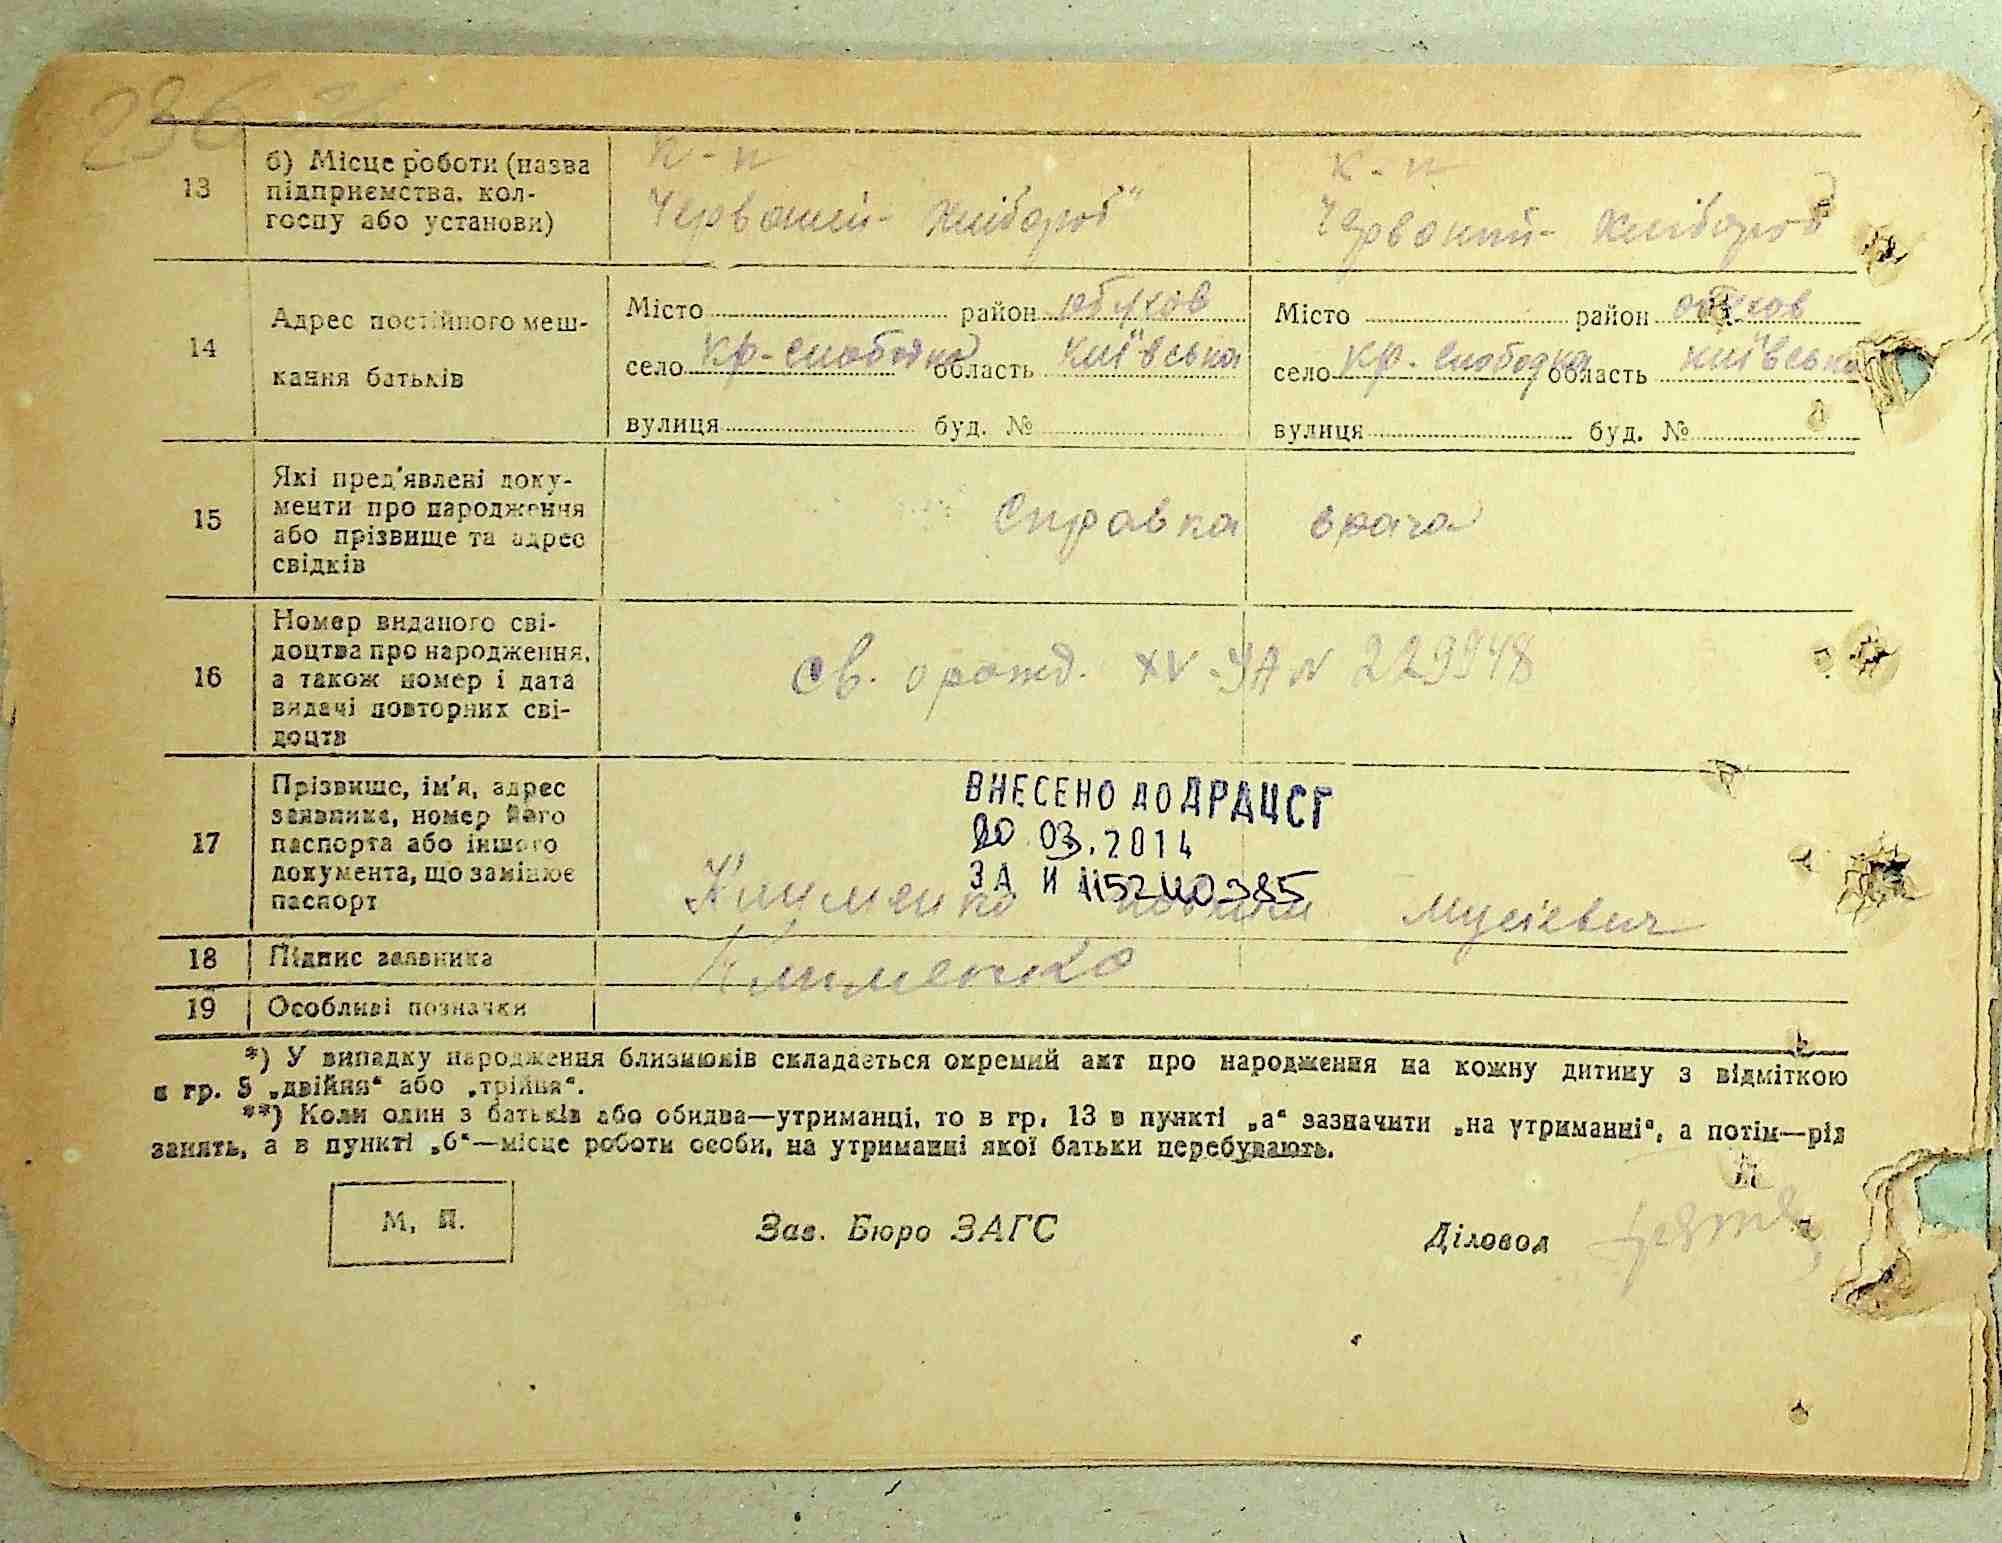 286
13
б) Місце роботи (назва
підприємства, кол-
госпу або установи)
к-п
Червоний- Хлібороб"
к-п
Червоний- Хлібороб
14
Адрес постійного меш-
кання батьків
Місто район обухов
село кр-слободка область Київська
вулиця буд. №
Місто район обухов
село кр. слободка область Київська
вулиця буд. №
15
Які пред'явлені доку-
менти про народження
або прізвище та адрес
свідків
Справка врача
16
Номер виданого сві-
доцтва про народження,
а також номер і дата
видачі повторних сві-
доцтв
св. о рожд. XV-УА N 229948
17
Прізвище, ім'я, адрес
заявника, номер його
паспорта або іншого
документа, що замінює
паспорт
ВНЕСЕНО ДО ДРАЦСГ
20 03.2014
ЗА И
Клименко Мусієвич
18
Підпис заявника
Клименко
19
Особливі позначки
*) У випадку народження близнюків складається окремий акт про народження на кожну дитину з відміткою
в гр. 5 „двійня" або „трійня".
**) Коли один з батьків або обидва—утриманці, то в гр. 13 в пункті „а" зазначити „на утриманні", а потім—рід
занять, а в пункті „б"—місце роботи особи, на утриманні якої батьки перебувають.
М. П.
Зав. Бюро ЗАГС
Діловод